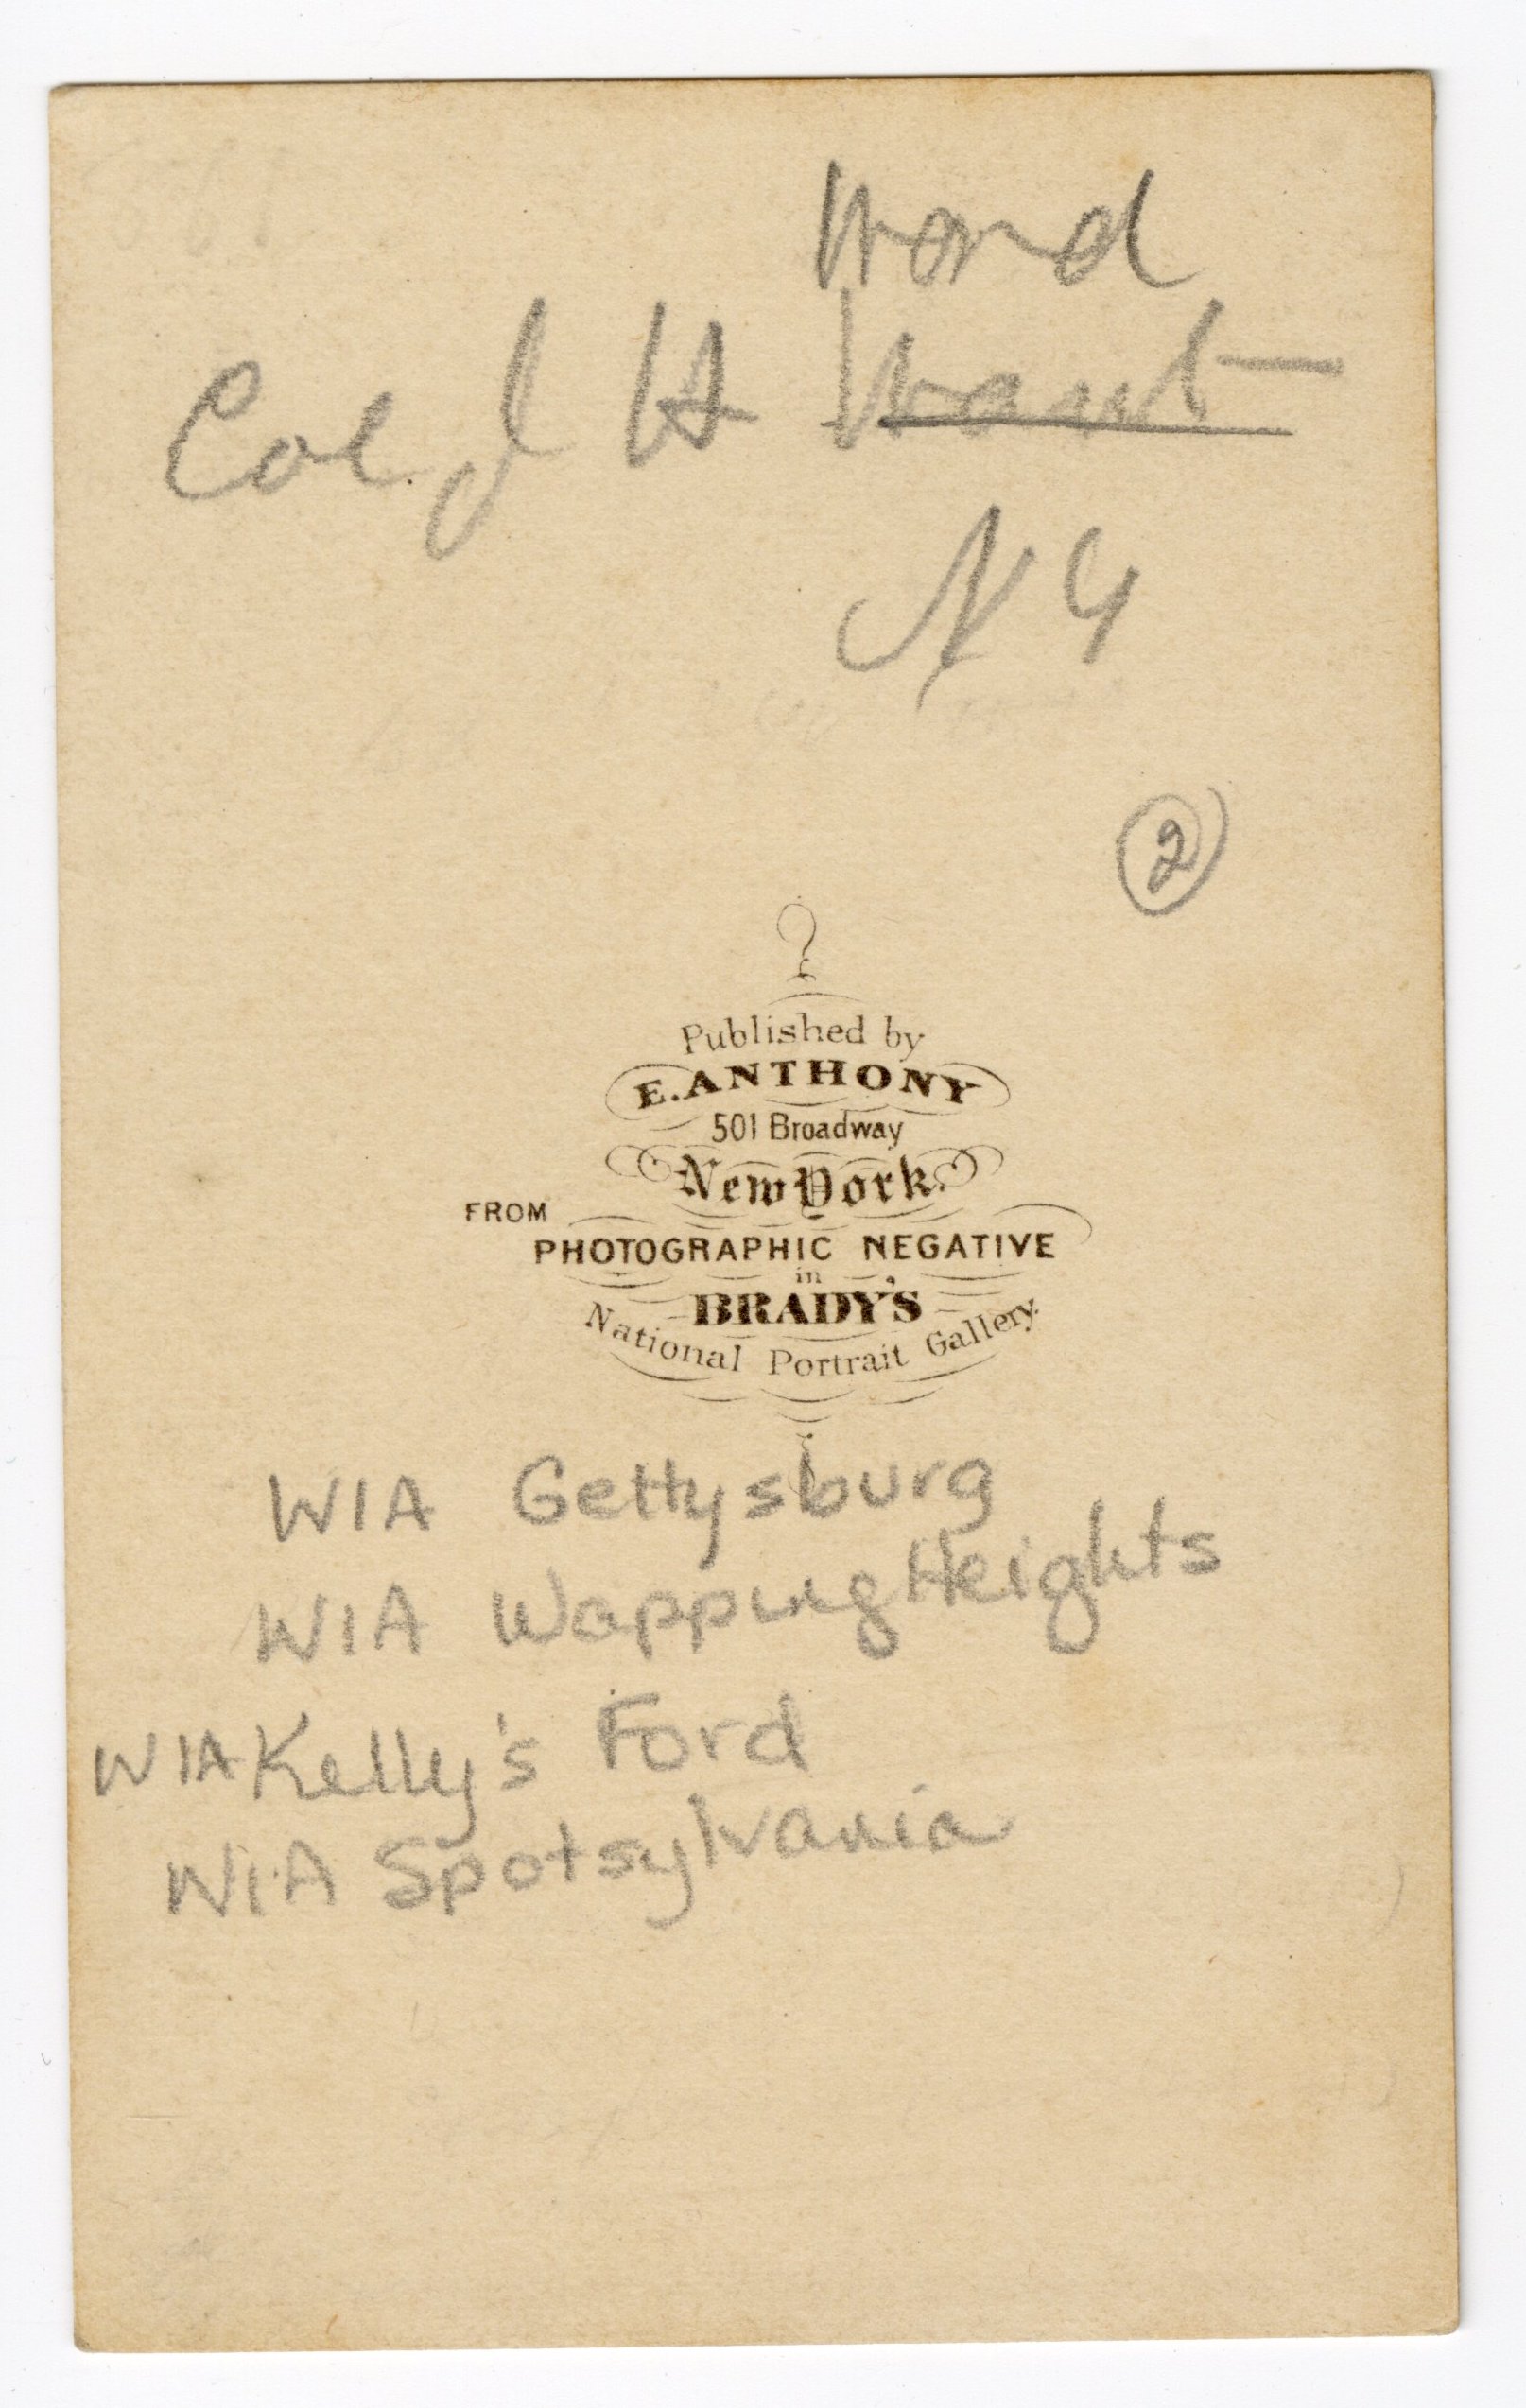 Ward
Col. J H Want
NY
2
Published by
E. ANTHONY
501 Broadway
New York.
FROM
PHOTOGRAPHIC NEGATIVE
in
BRADY'S
National Portrait Gallery.
WIA Gettysburg
WIA Wapping Heights
WIA Kelly's Ford
WIA Spotsylvania